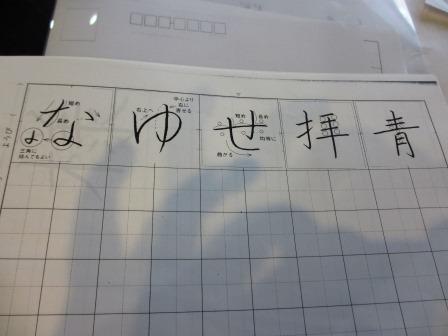 な
ゆ
せ
拝
青
短め
長め
三角に
結んでもよい
右上へ
中心より
右に
寄せる
短め
長め
均等に
曲がる